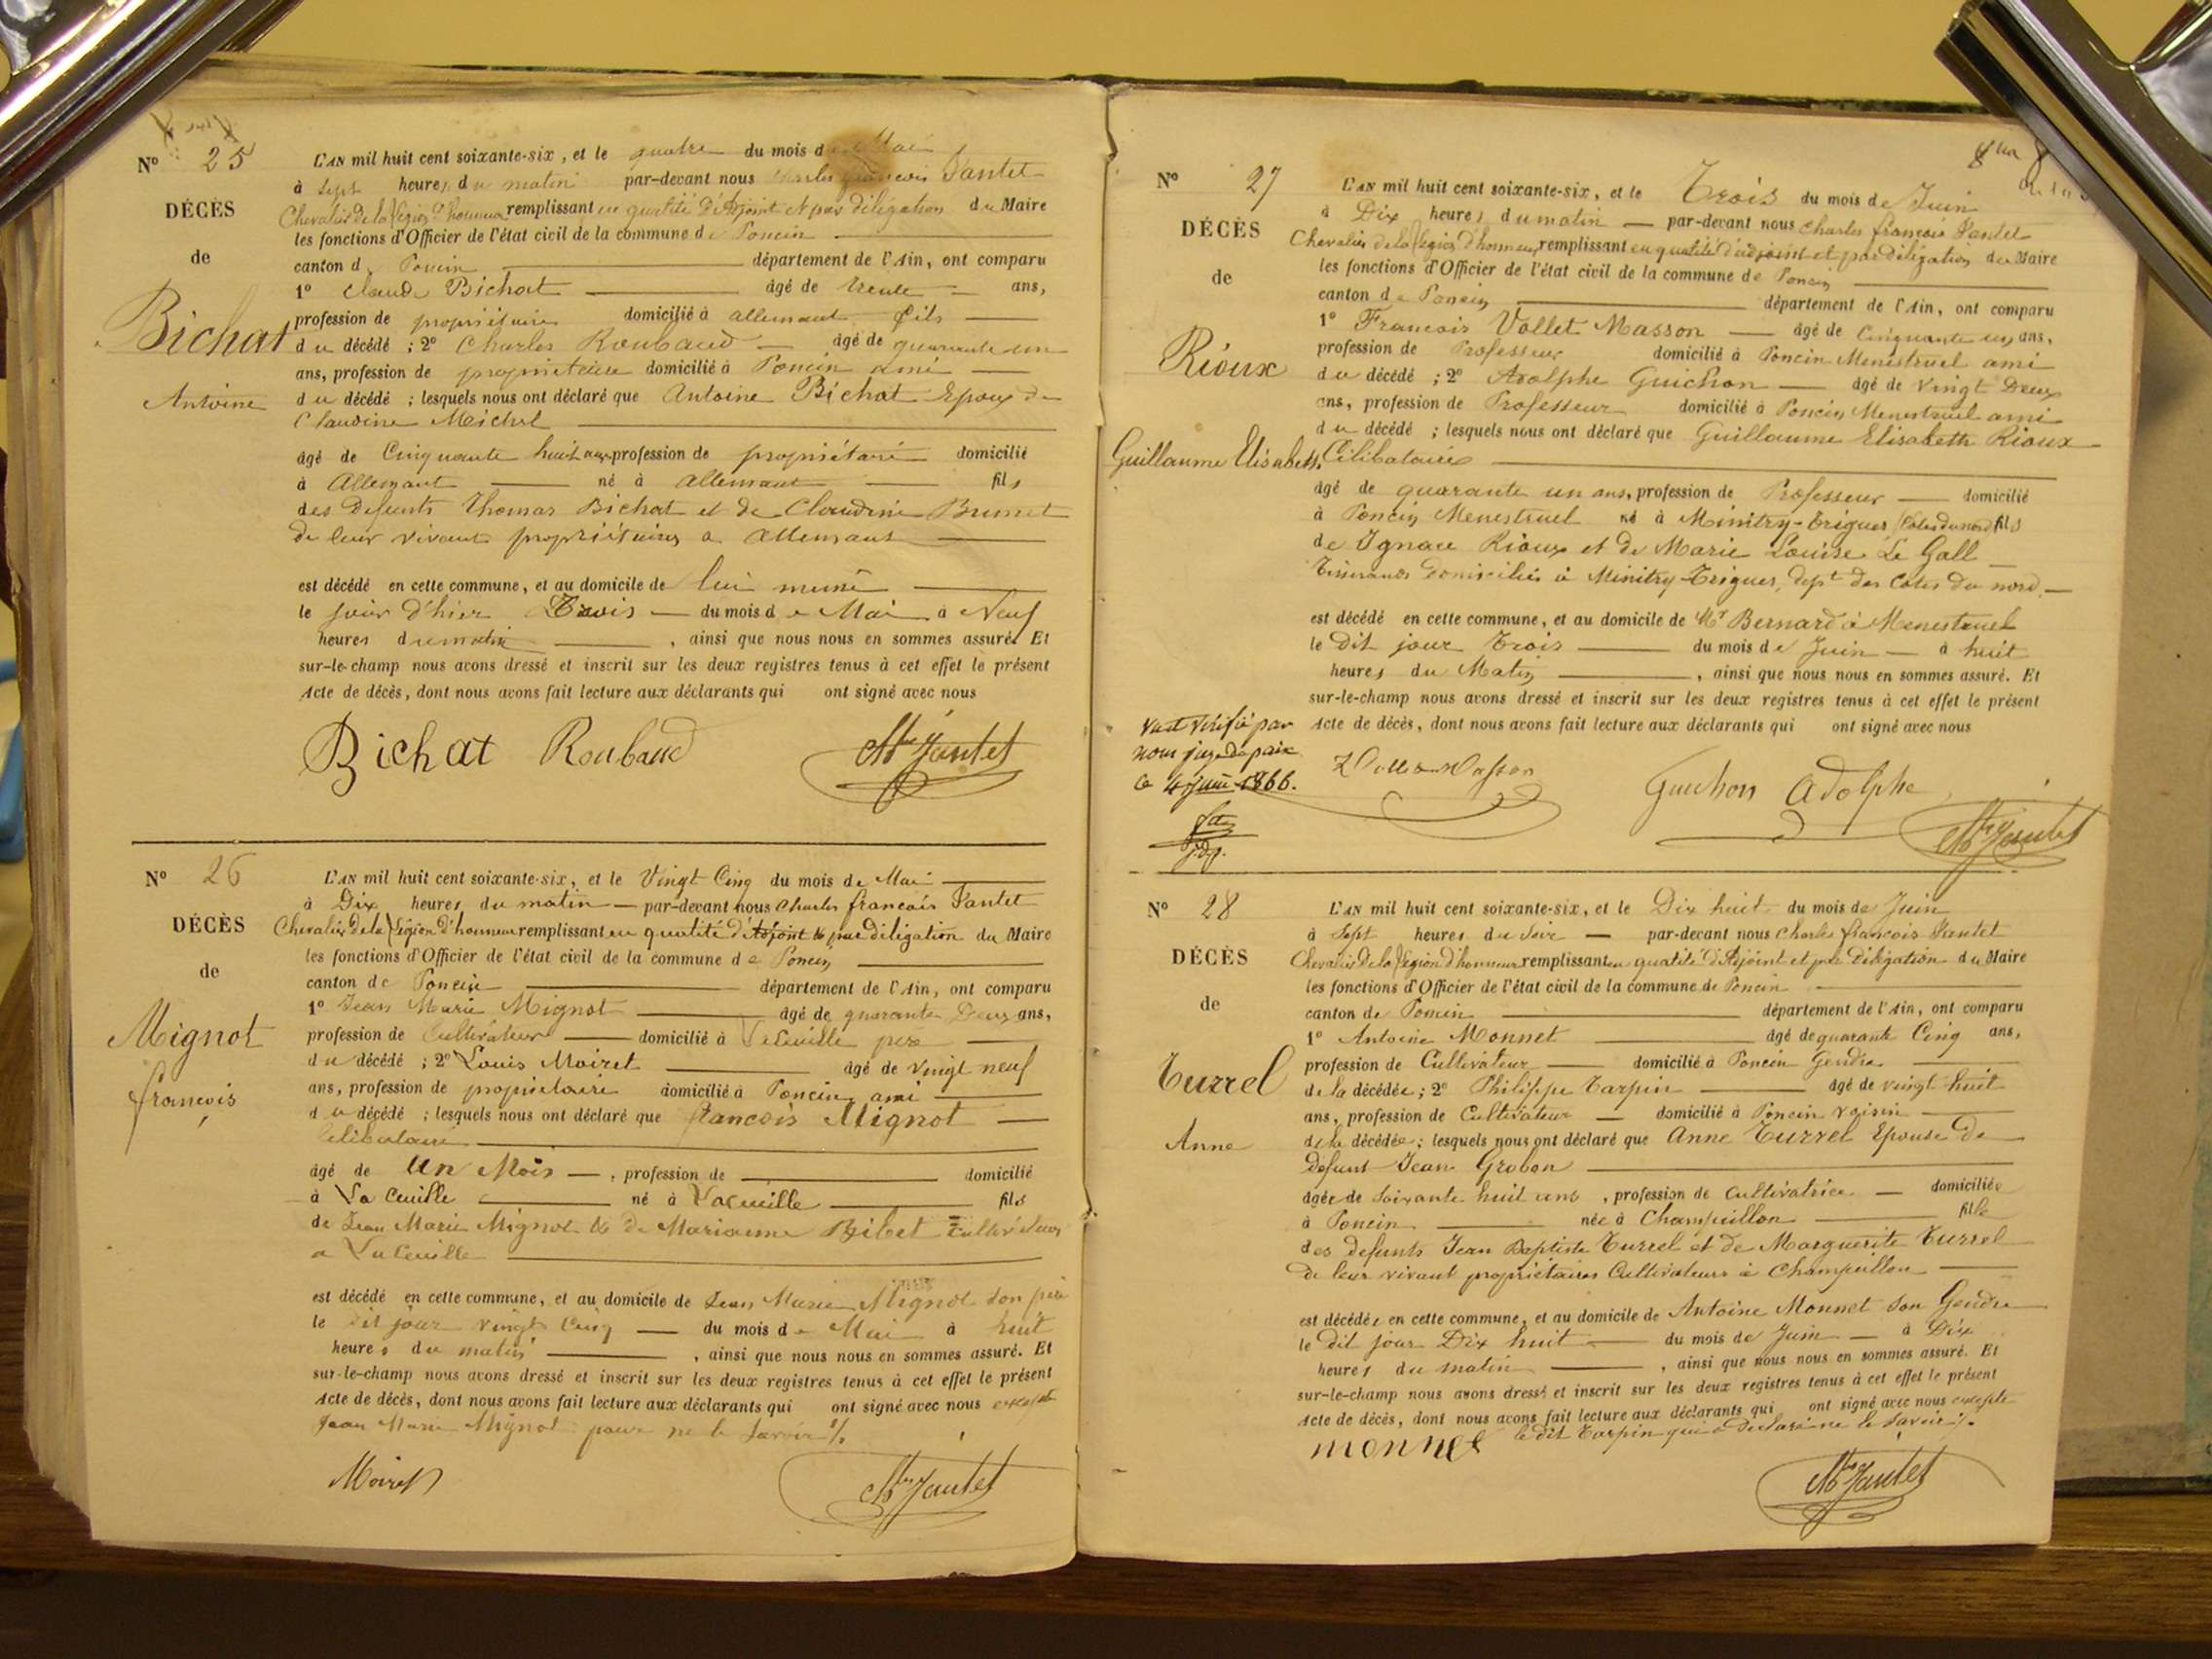 N° 25
L'AN mil huit cent soixante-six, et le quatre du mois de Mai
à sept heures du matin par-devant nous Charles françois Jantet
DÉCÈS
Chevalier de la légion d'honneur remplissant en qualité d'Adjoint et par délégation du Maire
les fonctions d'Officier de l'état civil de la commune de Poncin
de
canton de Poncin département de l'Ain, ont comparu
1° Claude Bichat âgé de trente ans,
Bichat
profession de propriétaire domicilié à allemant fils
du décédé ; 2° Charles Roubaud âgé de quarante un
ans, profession de propriétaire domicilié à Poncin ami
Antoine
du décédé ; lesquels nous ont déclaré que Antoine Bichat Epoux de
Claudine Michel
âgé de Cinquante huit ans profession de propriétaire domicilié
à Allemant né à allemant fils
des defunts Thomas Bichat et de Claudine Brunet
de leur vivant propriétaires a allemant
est décédé en cette commune, et au domicile de lui même
le jour d'hier Trois du mois de Mai à Neuf
heures du matin , ainsi que nous nous en sommes assuré. Et
sur-le-champ nous avons dressé et inscrit sur les deux registres tenus à cet effet le présent
Acte de décès, dont nous avons fait lecture aux déclarants qui ont signé avec nous
Bichat Roubaud Jantet
N° 26
L'AN mil huit cent soixante-six, et le Vingt Cinq du mois de Mai
à Dix heures du matin par-devant nous Charles francois Jantet
DÉCÈS
Chevalier de la légion d'honneur remplissant en qualité d'Adjoint & par délégation du Maire
les fonctions d'Officier de l'état civil de la commune de Poncin
de
canton de Poncin département de l'Ain, ont comparu
1° Jean Marie Mignot âgé de quarante Deux ans,
Mignot
profession de Cultivateur domicilié à père
du décédé ; 2° Louis Moiret âgé de vingt neuf
françois
ans, profession de propriétaire domicilié à Poncin ami
du décédé ; lesquels nous ont déclaré que francois Mignot
Célibataire
âgé de Un Mois , profession de domicilié
à La Cueille né à Lacueille fils
de Jean Marie Mignot & de Marianne Bibet Cultivateurs
a La Cueille
est décédé en cette commune, et au domicile de Jean Marie Mignot son père
le dit jour vingt Cinq du mois de Mai à huit
heures du matin , ainsi que nous nous en sommes assuré. Et
sur-le-champ nous avons dressé et inscrit sur les deux registres tenus à cet effet le présent
Acte de décès, dont nous avons fait lecture aux déclarants qui ont signé avec nous excepté
Jean Marie Mignot pour ne le savoir
Moiret Jantet
N° 27
L'AN mil huit cent soixante-six, et le Trois du mois de Juin
à Dix heures du matin par-devant nous Charles francois Jantet
DÉCÈS
Chevalier de la légion d'honneur remplissant en qualité d'adjoint et par délégation du Maire
les fonctions d'Officier de l'état civil de la commune de Poncin
de
canton de Poncin département de l'Ain, ont comparu
1° Francois Vollet Masson âgé de Cinquante un ans,
Rioux
profession de Professeur domicilié à Poncin Menestruel ami
du décédé ; 2° Adolphe Guichon âgé de vingt Deux
ans, profession de Professeur domicilié à Poncin Menestruel ami
du décédé ; lesquels nous ont déclaré que Guillaume Elisabeth Rioux
Guillaume Elisabeth
Célibataire
âgé de quarante un ans, profession de Professeur domicilié
à Poncin Menestruel né à Minitry-Triguer (Cotes du nord) fils
de Ignace Rioux et de Marie Louise Le Gall
Tisserands domiciliés à Minitry-Triguer, dept des Cotes du nord
est décédé en cette commune, et au domicile de Mr Bernard à Menestruel
le dit jour Trois du mois de Juin à huit
heures du Matin , ainsi que nous nous en sommes assuré. Et
sur-le-champ nous avons dressé et inscrit sur les deux registres tenus à cet effet le présent
Acte de décès, dont nous avons fait lecture aux déclarants qui ont signé avec nous
Vu et vérifié par
nous juge de paix
le 4 juin 1866.
j.d.p.
Vollet Masson Guichon Adolphe Jantet
N° 28
L'AN mil huit cent soixante-six, et le Dix huit du mois de Juin
à Sept heures du Soir par-devant nous Charles francois Jantet
DÉCÈS
Chevalier de la légion d'honneur remplissant en qualité d'Adjoint et par délégation du Maire
les fonctions d'Officier de l'état civil de la commune de Poncin
de
canton de Poncin département de l'Ain, ont comparu
1° Antoine Monnet âgé de quarante Cinq ans,
profession de Cultivateur domicilié à Poncin Gendre
Turrel
de la décédée ; 2° Philippe Tarpin âgé de vingt huit
ans, profession de Cultivateur domicilié à Poncin voisin
Anne
de la décédée ; lesquels nous ont déclaré que Anne Turrel Epouse de
defunt Jean Grobon
âgée de Soixante huit ans , profession de cultivatrice domiciliée
à Poncin née à Champeillon fille
des defunts Jean Baptiste Turrel et de Marguerite Turrel
de leur vivant propriétaires Cultivateurs à Champeillon
est décédée en cette commune, et au domicile de Antoine Monnet son Gendre
le dit jour Dix huit du mois de Juin à Dix
heures du matin , ainsi que nous nous en sommes assuré. Et
sur-le-champ nous avons dressé et inscrit sur les deux registres tenus à cet effet le présent
Acte de décès, dont nous avons fait lecture aux déclarants qui ont signé avec nous excepté
le dit Tarpin qui a déclaré ne le savoir
monnet Jantet